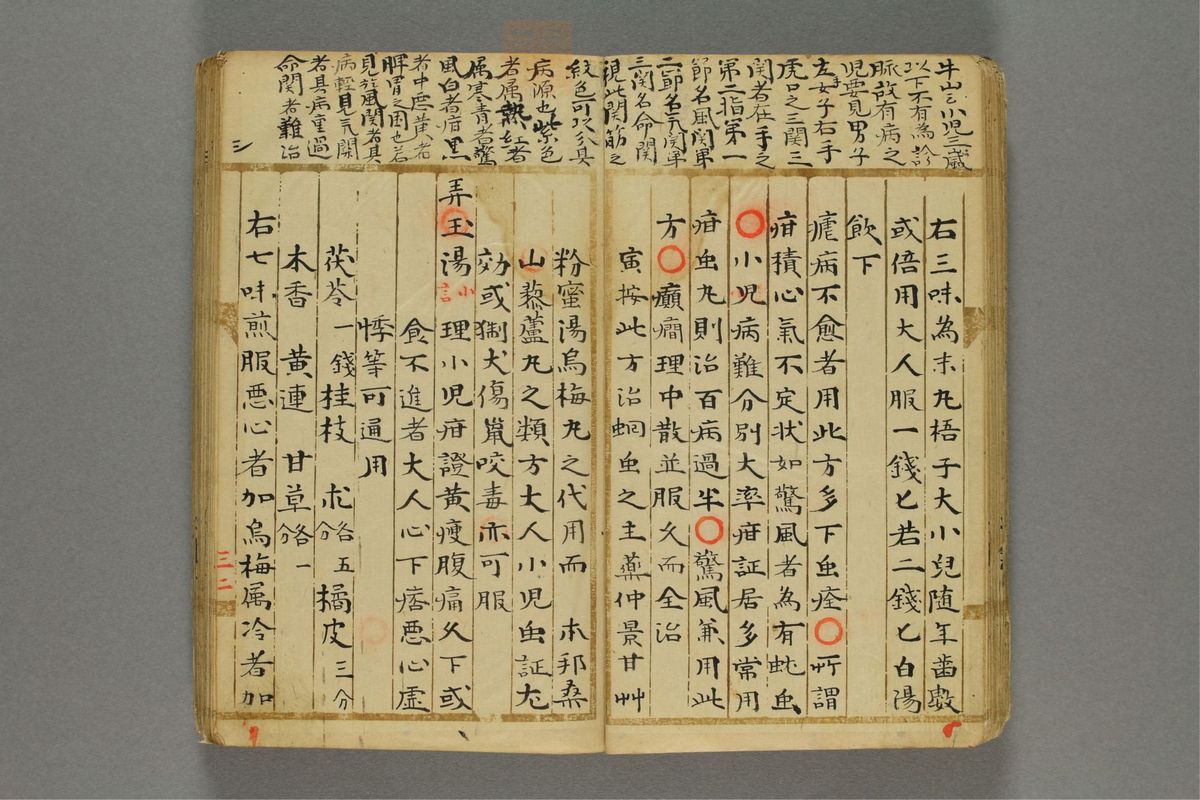 牛山云小児三歳
以下不有為診
脈故有病之
児要見男子
左女子右手
虎口之三関三
関者在手之
第二指第一
節名風関第
二節名氣関第
三関名命関
視此関筋之
紋色可以分其
病源也紫色
者属熱紅者
属寒青者驚
風白者疳黒
者中悪黄者
脾胃之困也若
見於風関者其
病軽見氣関
者其病重過
命関者難治
三
右三味為末丸梧子大小兒随年歯数
或倍用大人服一錢匕若二錢匕白湯
飲下
瘧病不愈者用此方多下虫痊〇所謂
疳積心氣不定状如驚風者為有蚘虫
〇小児病難分別大率疳証居多常用
疳虫丸則治百病過半〇驚風兼用此
方〇癲癇理中散並服久而全治
寅按此方治蛔虫之主薬仲景甘艸
粉蜜湯烏梅丸之代用而 本邦桑
山藜蘆丸之類方大人小児虫証尤
効或猘犬傷鼠咬毒亦可服
弄玉湯 小言 理小児疳證黄痩腹痛久下或
食不進者大人心下痞悪心虚
悸等可通用
茯苓一錢桂枝 朮各五分 橘皮三分
木香 黄連 甘草各一分
右七味煎服悪心者加烏梅属冷者加
三二